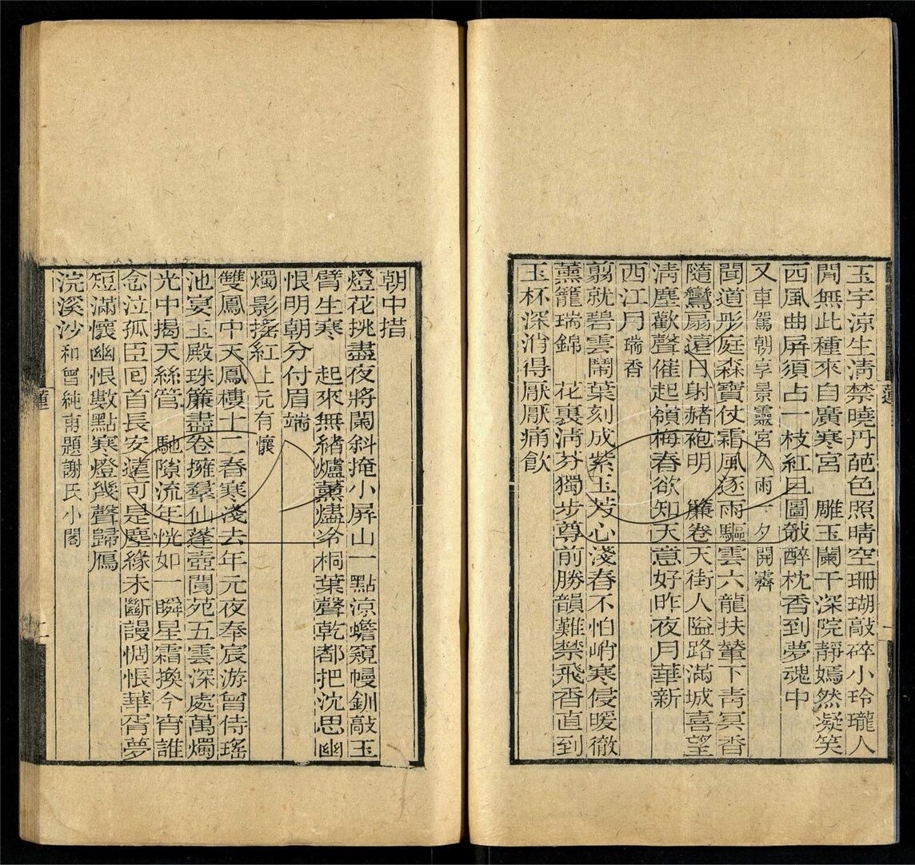 玉宇涼生清禁曉丹葩色照晴空珊瑚敲碎小玲瓏人
閒無此種來自廣寒宮　雕玉闌干深院靜嫣然凝笑
西風曲屏須占一枝紅且圖欹醉枕香到夢魂中
又車駕朝享景靈宮久雨一夕開霽
聞道彤庭森寶仗霜風逐雨驅雲六龍扶輦下青冥香
隨鸞扇遠日射赭袍明　簾卷天街人隘路滿城喜望
清塵歡聲催起嶺梅春欲知天意好昨夜月華新
西江月瑞香
翦就碧雲鬧葉刻成紫玉芳心淺春不怕峭寒侵暖徹
薰籠瑞錦　花裏清芬獨步尊前勝韻難禁飛香直到
玉杯深消得厭厭痛飲
蓮
一
朝中措
燈花挑盡夜將闌斜掩小屏山一點涼蟾窺幔釧敲玉
臂生寒　起來無緒爐薰燼冷桐葉聲乾都把沈思幽
恨明朝分付眉端
燭影搖紅上元有懷
雙鳳中天鳳樓十二春寒淺去年元夜奉宸游曾侍瑤
池宴玉殿珠簾盡卷擁羣仙蓬壺閬苑五雲深處萬燭
光中揭天絲管　馳隙流年恍如一瞬星霜換今宵誰
念泣孤臣回首長安遠可是塵緣未斷謾惆悵華胥夢
短滿懷幽恨數點寒燈幾聲歸鴈
浣溪沙和曾純甫題謝氏小閣
蓮
二